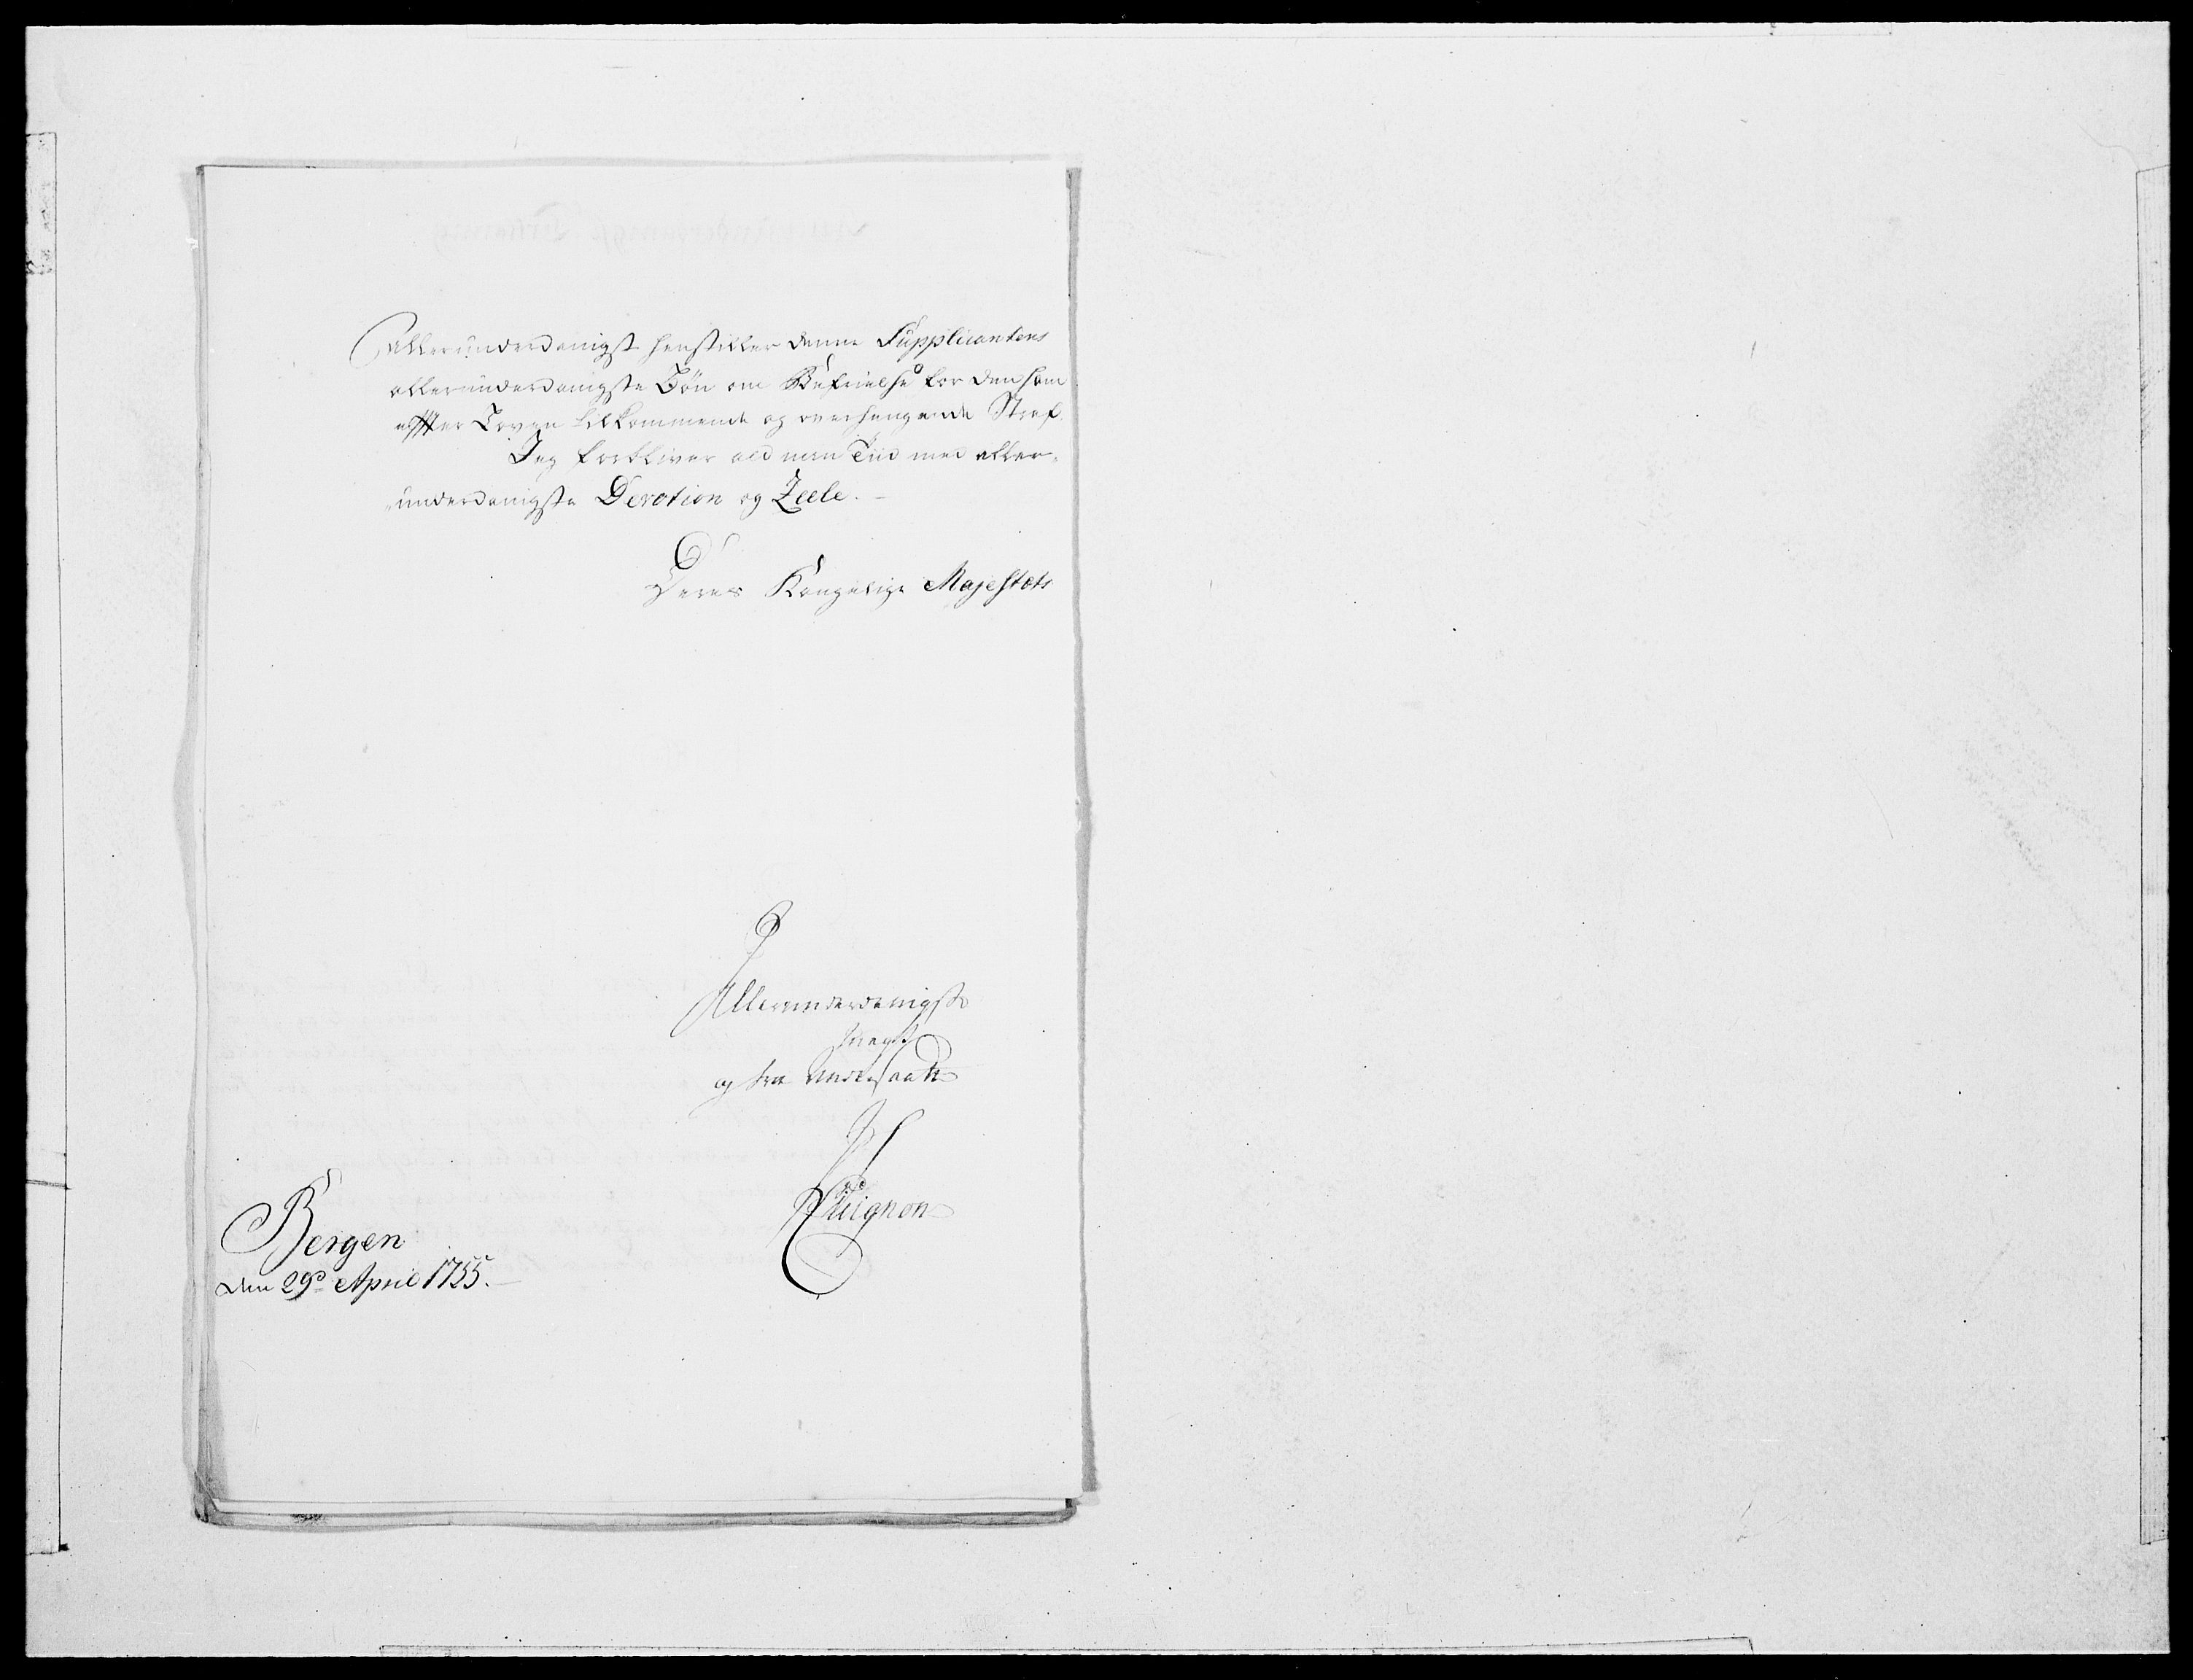 allerunderdanigst henstiller denne Supplicantens
allerunderdanigste Bön om Befrielse for den ham
effter Loven tilkommende og overhengende Straf
Jeg forbliver ald min Tiid med aller-
underdanigste Devotion og Zeele.
Deres Kongelige Majestets
Allerunderdanigste
og troe Undersaatt
Bergen
den 29de April 1755.